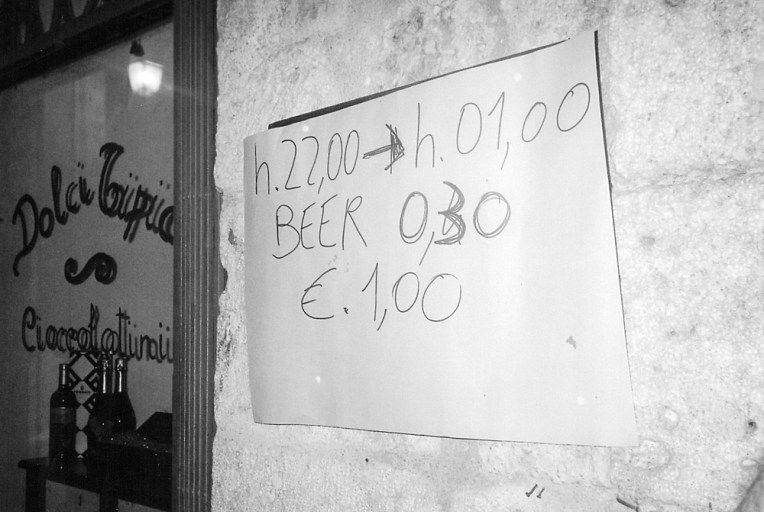 Dolcii Trippicii
Cioccollattinaii
h.22,00 → h.01,00
BEER 0,30
€.1,00